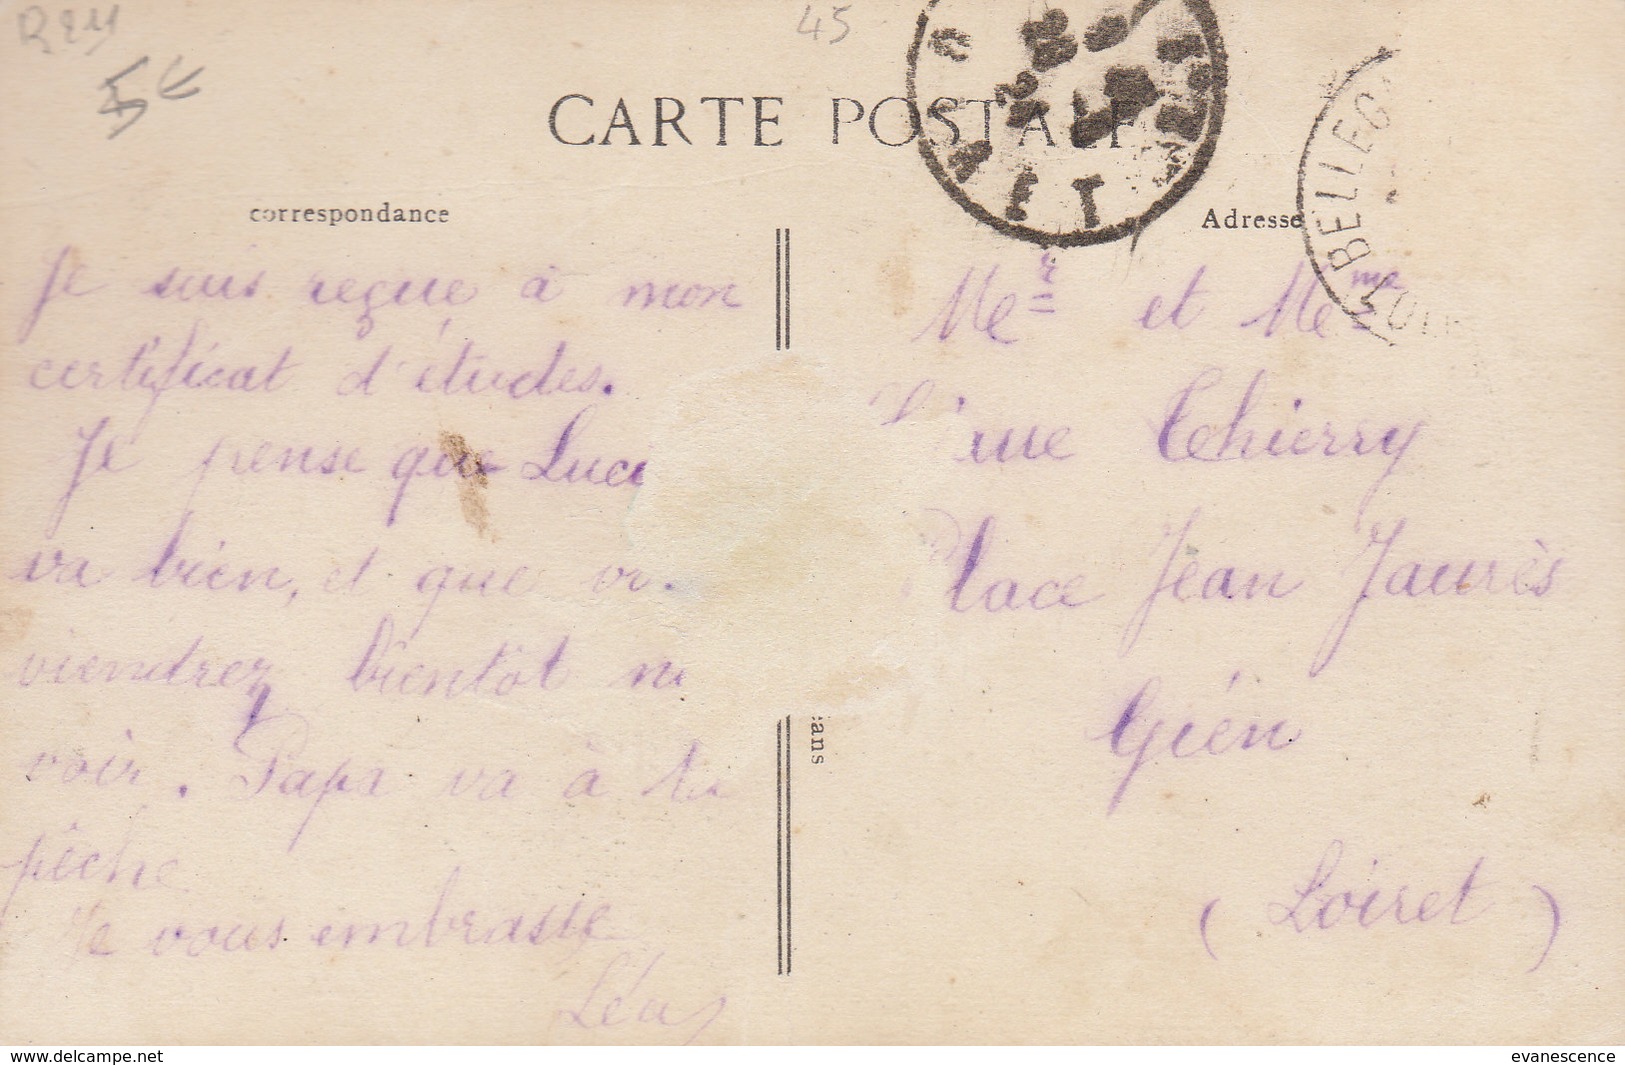 R24
5€
45
CARTE POSTALE
correspondance
Adresse
BELLEG
Je suis reçue à mon
certificat d'études.
Je pense que Luci
va bien, et que vo
viendrez bientôt m
voir. Papa va à la
pêche
Je vous embrasse
Léa
Mr et Mme
rue Thierry
Place Jean Jaurès
Gién
(Loiret)
ans
www.delcampe.net
evanescence